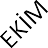 EKİM